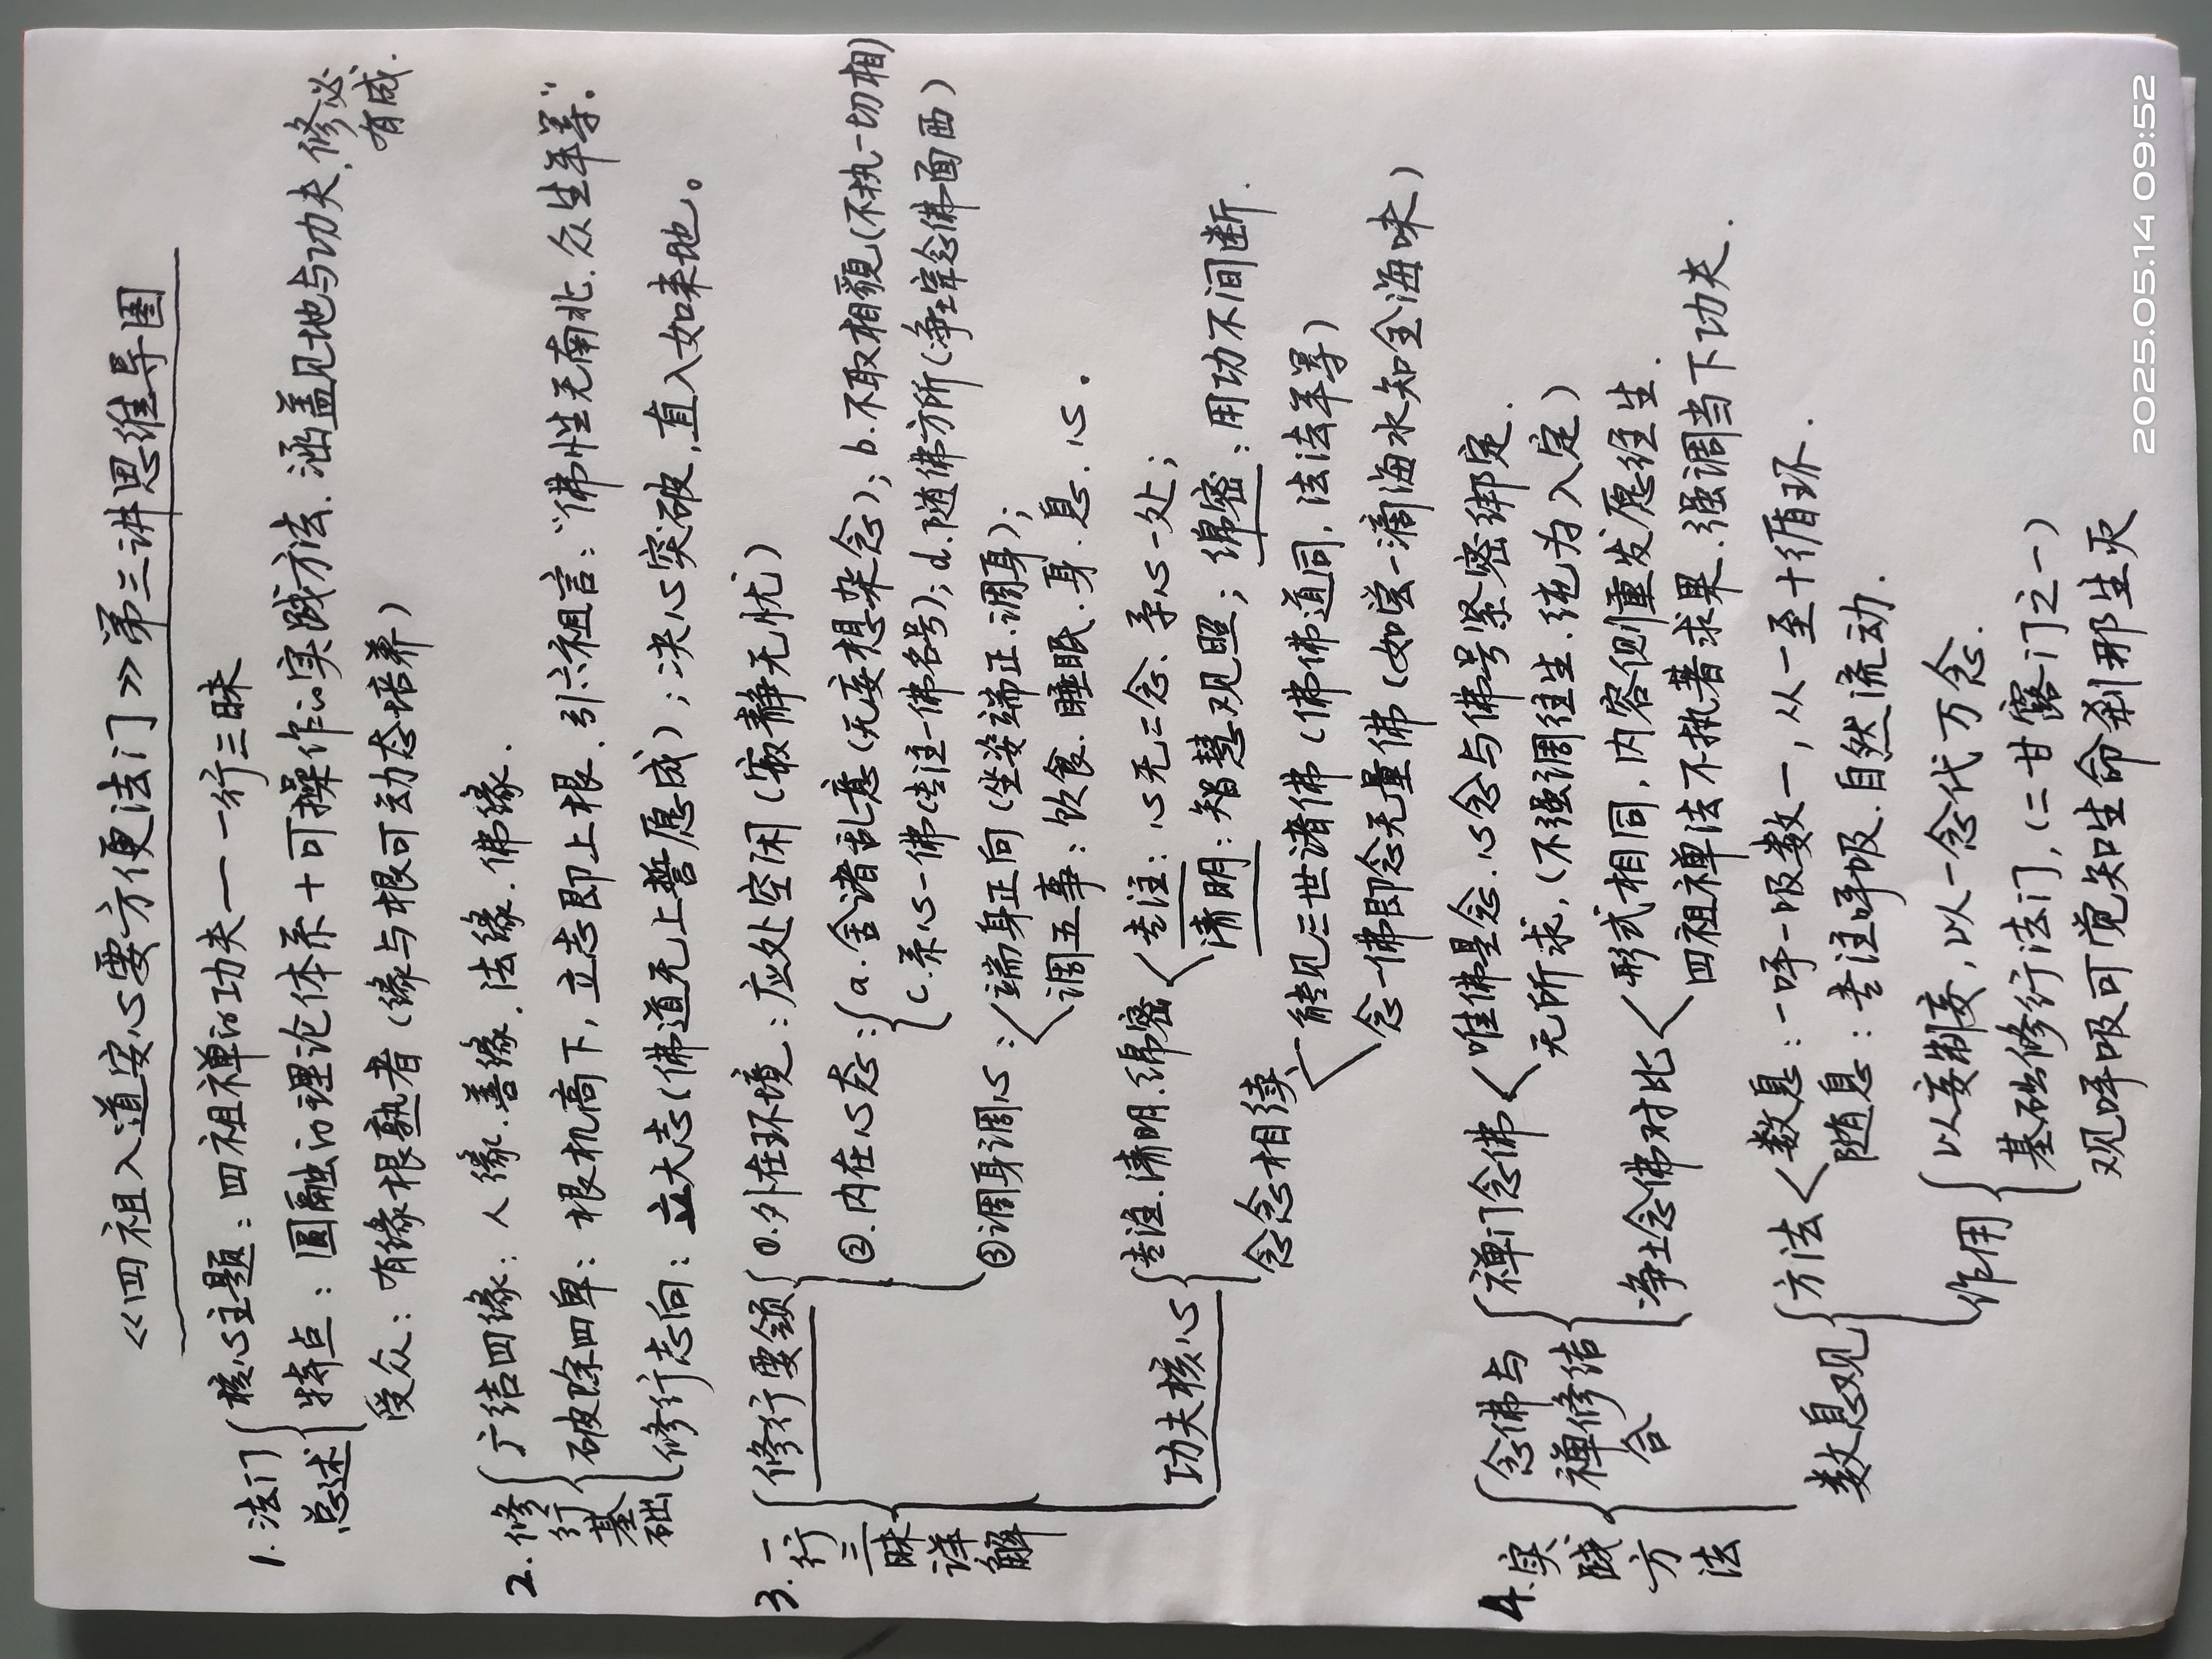 《四祖入道安心要方便法门》第三讲思维导图
1.法门总述
核心主题：四祖禅的功夫——一行三昧
特点：圆融的理论体系+可操作的实践方法.涵盖见地与功夫.修必有成.
受众：有缘根熟者(缘与根可动态培养)
2.修行基础
广结四缘：人缘.善缘.法缘.佛缘.
破除四卑：根机高下,立志即上根.引六祖言："佛性无南北.众生平等".
修行志向：立大志(佛道无上誓愿成)；决心突破,直入如来地。
3.一行三昧详解
修行要领
①.外在环境：应处空闲(寂静无忧)
②.内在心态：
a.舍诸乱意(无妄想杂念)；b.不取相貌(不执一切相)
c.系心一佛(专注一佛名号)；d.随佛方所(净土宗念佛面西)
③调身调心：
端身正向(坐姿端正.调身)；
调五事：饮食.睡眠.身.息.心.
功夫核心
专注.清明.绵密
专注：心无二念.系心一处；
清明：智慧观照；绵密：用功不间断.
念念相续
能见三世诸佛(佛佛道同,法法平等)
念一佛即念无量佛(如尝一滴海水知全海味)
4.实践方法
念佛与禅修结合
禅门念佛
唯佛是念.心念与佛号紧密绑定.
无所求,(不强调往生.纯为入定)
净土念佛对比
形式相同,内容侧重发愿往生.
四祖禅法不执著求果.强调当下功夫.
数息观
方法
数息：一呼一吸数一,从一至十循环.
随息：专注呼吸.自然流动.
作用
以妄制妄,以一念代万念.
基础修行法门,(二甘露门之一)
观呼吸可觉知生命刹那生灭
2025.05.14 09:52